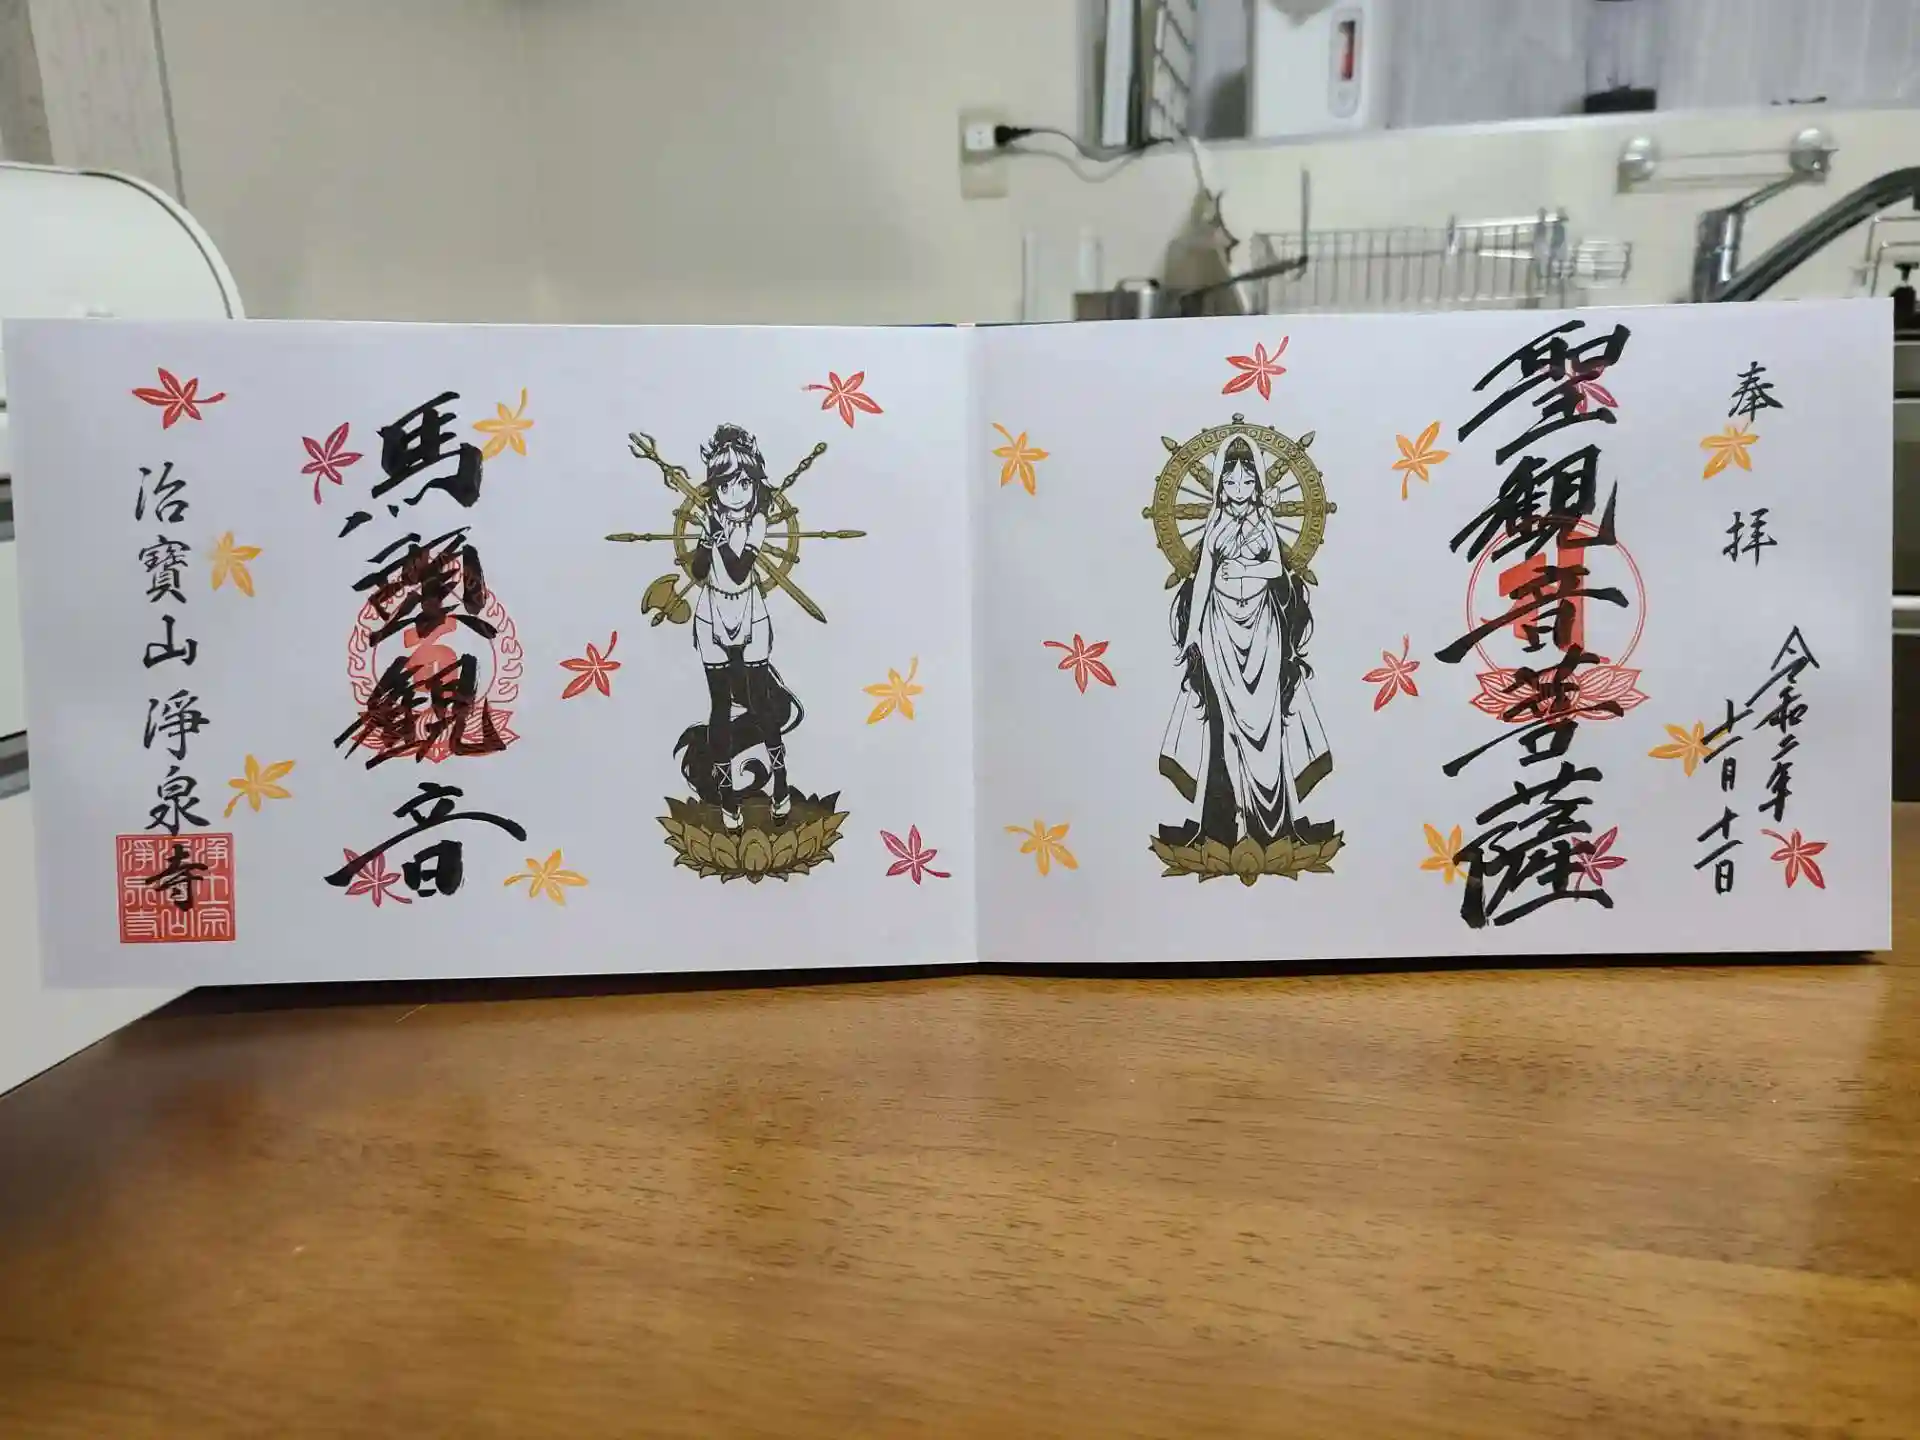 奉拝
令和二年
十一月十一日
聖観音菩薩
馬頭観音
治寶山淨泉寺
浄土宗
治寶山
淨泉寺